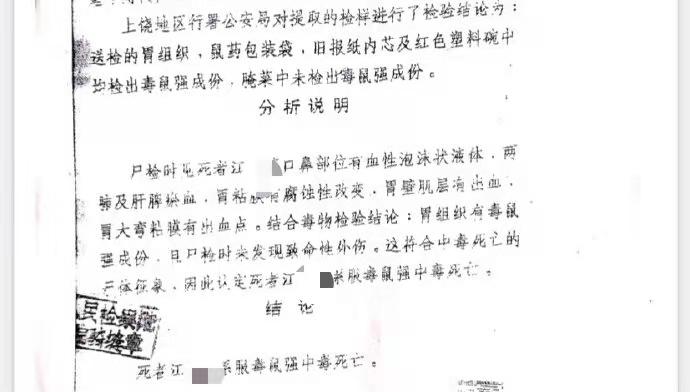 上饶地区行署公安局对提取的检样进行了检验结论为：
送检的胃组织，鼠药包装袋，旧报纸内芯及红色塑料碗中
均检出毒鼠强成份，腌菜中未检出毒鼠强成份。
分析说明
尸检时见死者江 口鼻部位有血性泡沫状液体，两
肺及肝脾瘀血，胃粘膜有腐蚀性改变，胃壁肌层有出血，
胃大弯粘膜有出血点。结合毒物检验结论：胃组织有毒鼠
强成份，且尸检时未发现致命性外伤。这符合中毒死亡的
尸体征象，因此认定死者江 系服毒鼠强中毒死亡。
结论
民检察院
死者江 系服毒鼠强中毒死亡。